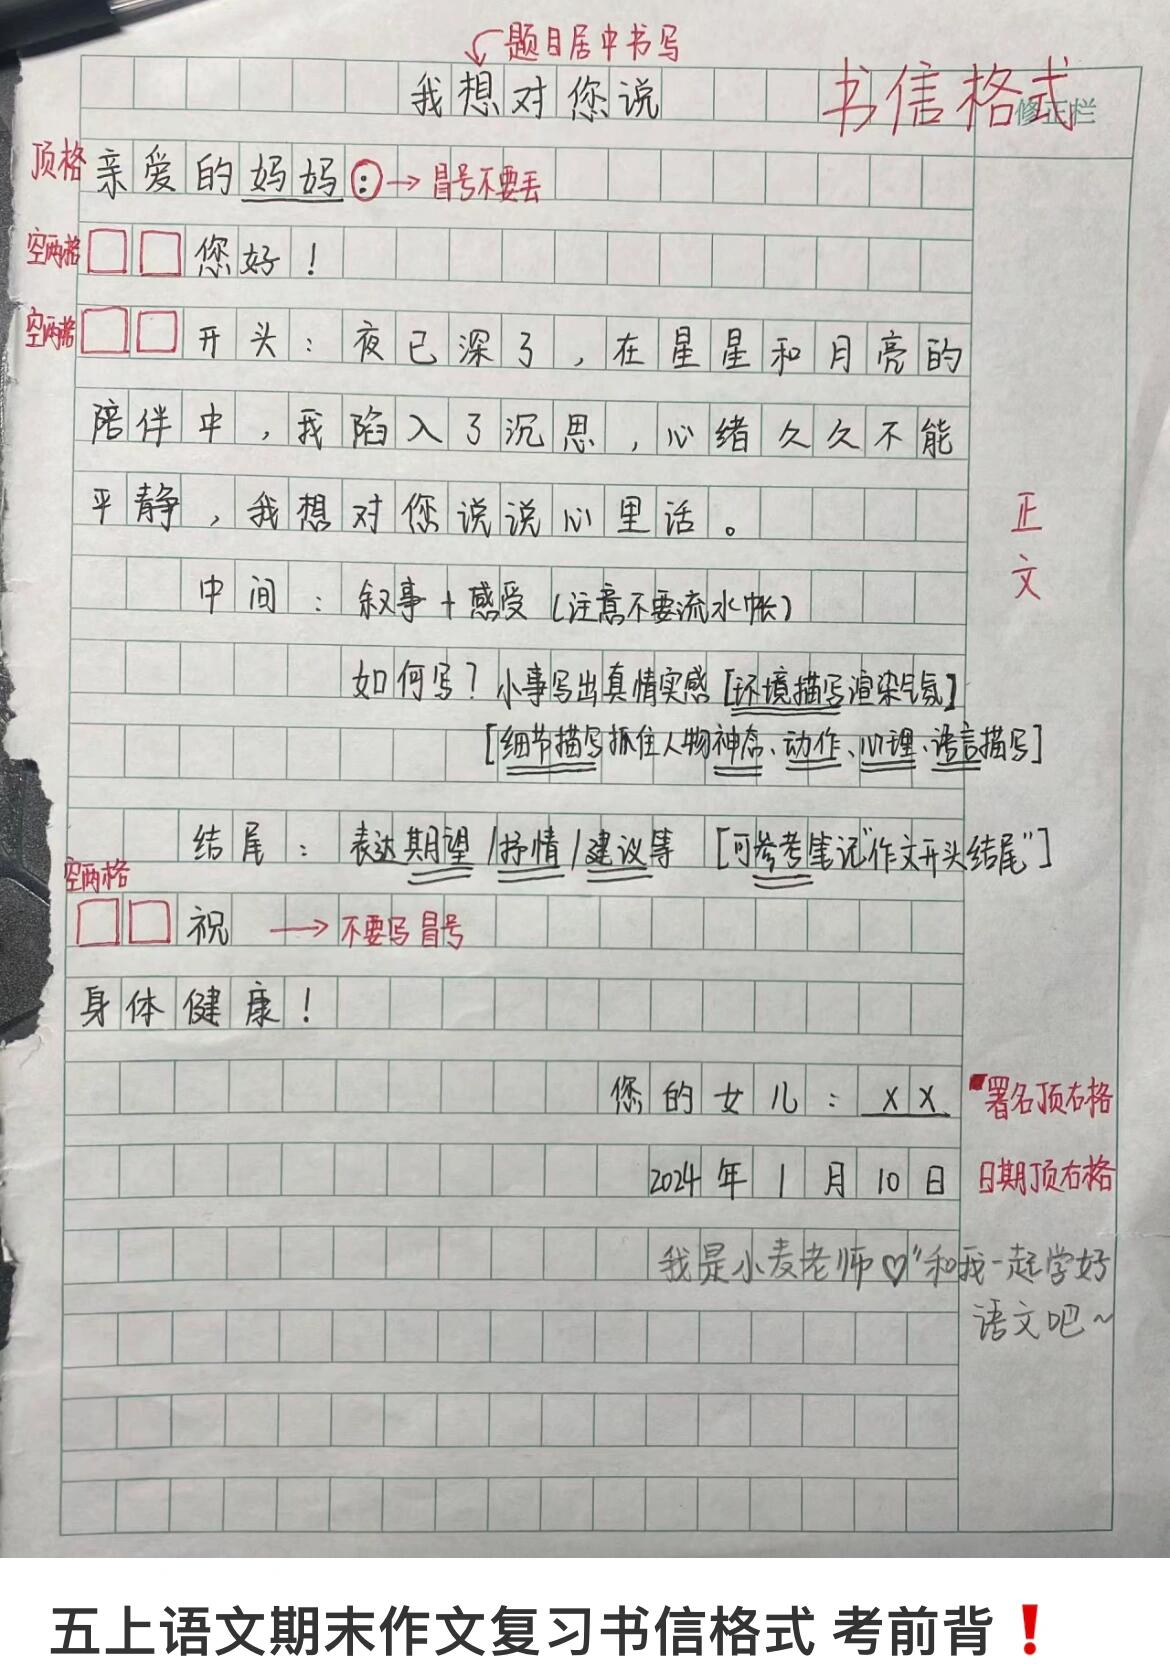 题目居中书写
我想对您说
书信格式
修正栏
顶格 亲爱的妈妈：→冒号不要丢
空两格 您好！
空两格 开头：夜已深了，在星星和月亮的
陪伴中，我陷入了沉思，心绪久久不能
平静，我想对您说说心里话。
正文
中间：叙事+感受(注意不要流水帐)
如何写？小事写出真情实感[环境描写渲染气氛]
[细节描写抓住人物神态、动作、心理、语言描写]
结尾：表达期望/抒情/建议等 [可参考笔记"作文开头结尾"]
空两格
祝 →不要写冒号
身体健康！
您的女儿：XX 署名顶右格
2024年1月10日 日期顶右格
我是小麦老师♡"和我一起学好
语文吧~
五上语文期末作文复习书信格式 考前背❗